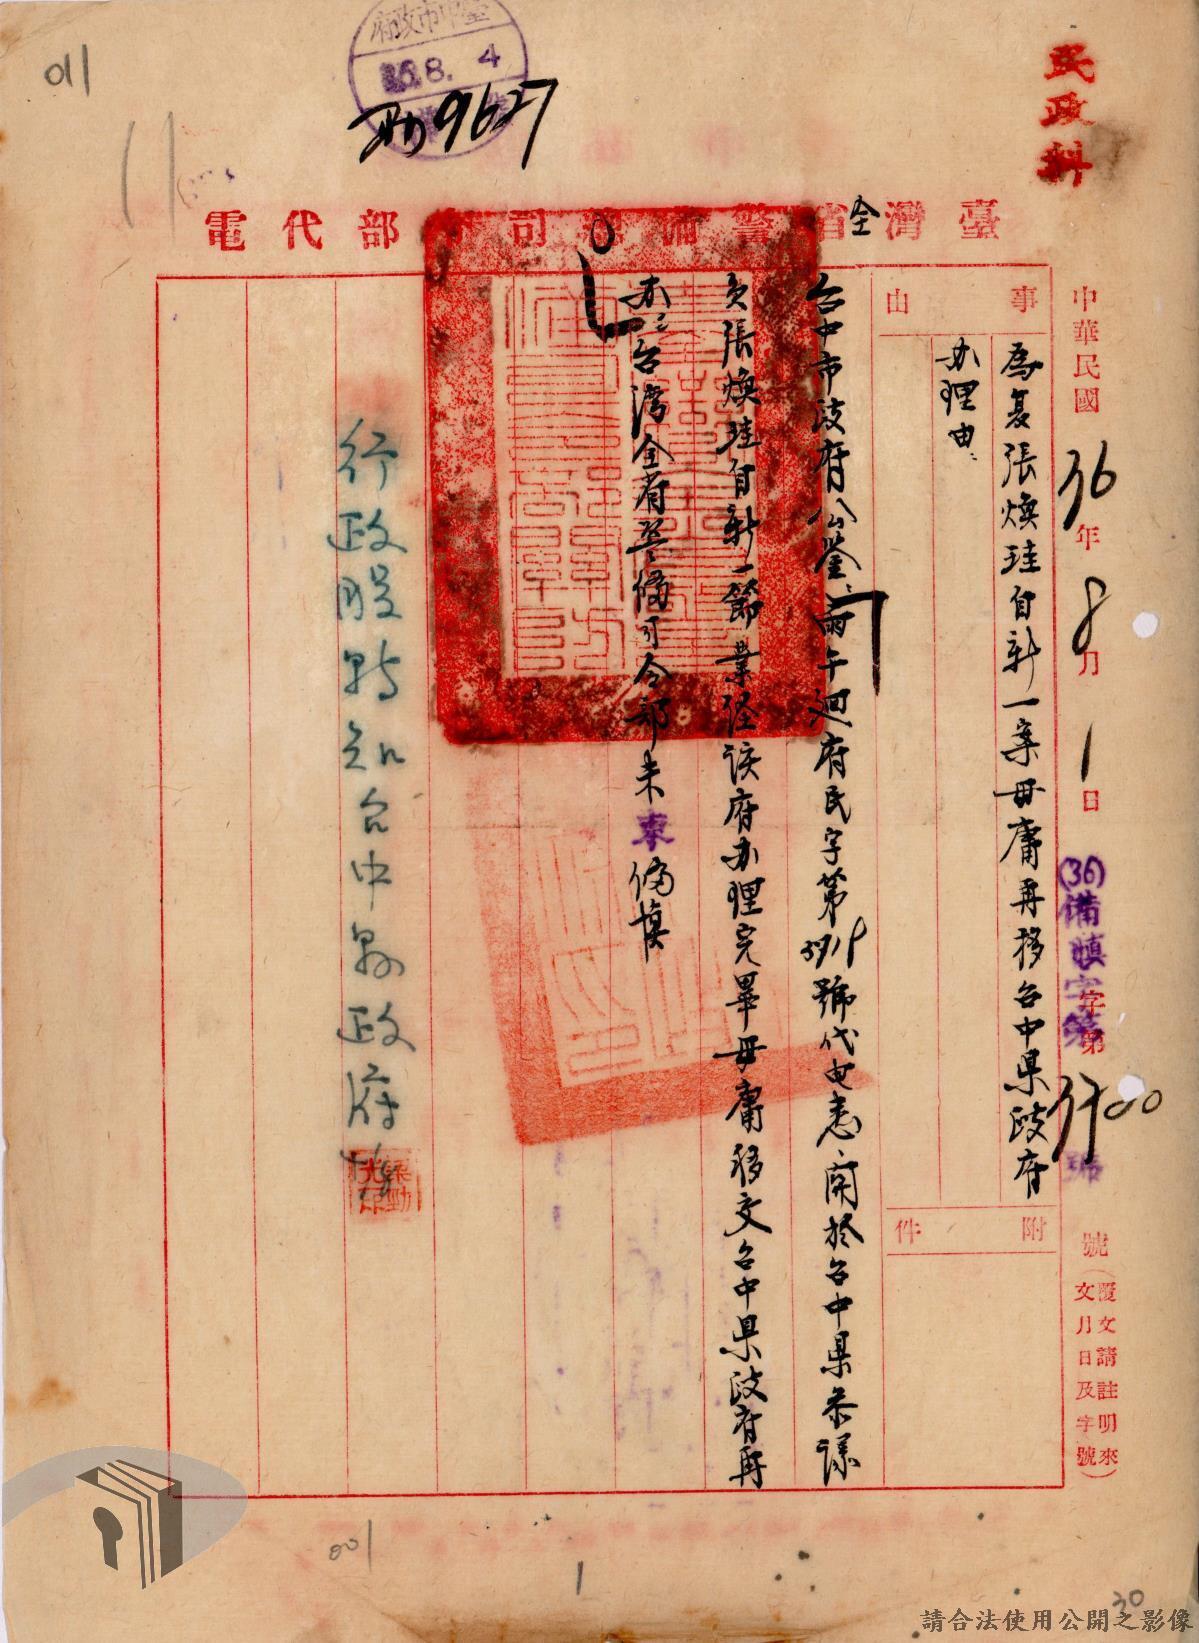 011
11
臺中市政府
36.8.4
9627
民政科
臺灣全省警備總司令部代電
中華民國36年8月1日
(36)備慎字第5500號
字第 號(覆文請註明來文月日及字號)
事由
為复張煥珪自新一案毋庸再移台中県政府
办理由
附件
台中市政府公鉴:兩午迴府民字第3918號代电悉關於台中県参議
员張煥珪自新一節業经该府办理完畢毋庸移文台中県政府再
办台灣全省警備司令部未東備慎
行政股转知台中县政府
001
1
30
請合法使用公開之影像